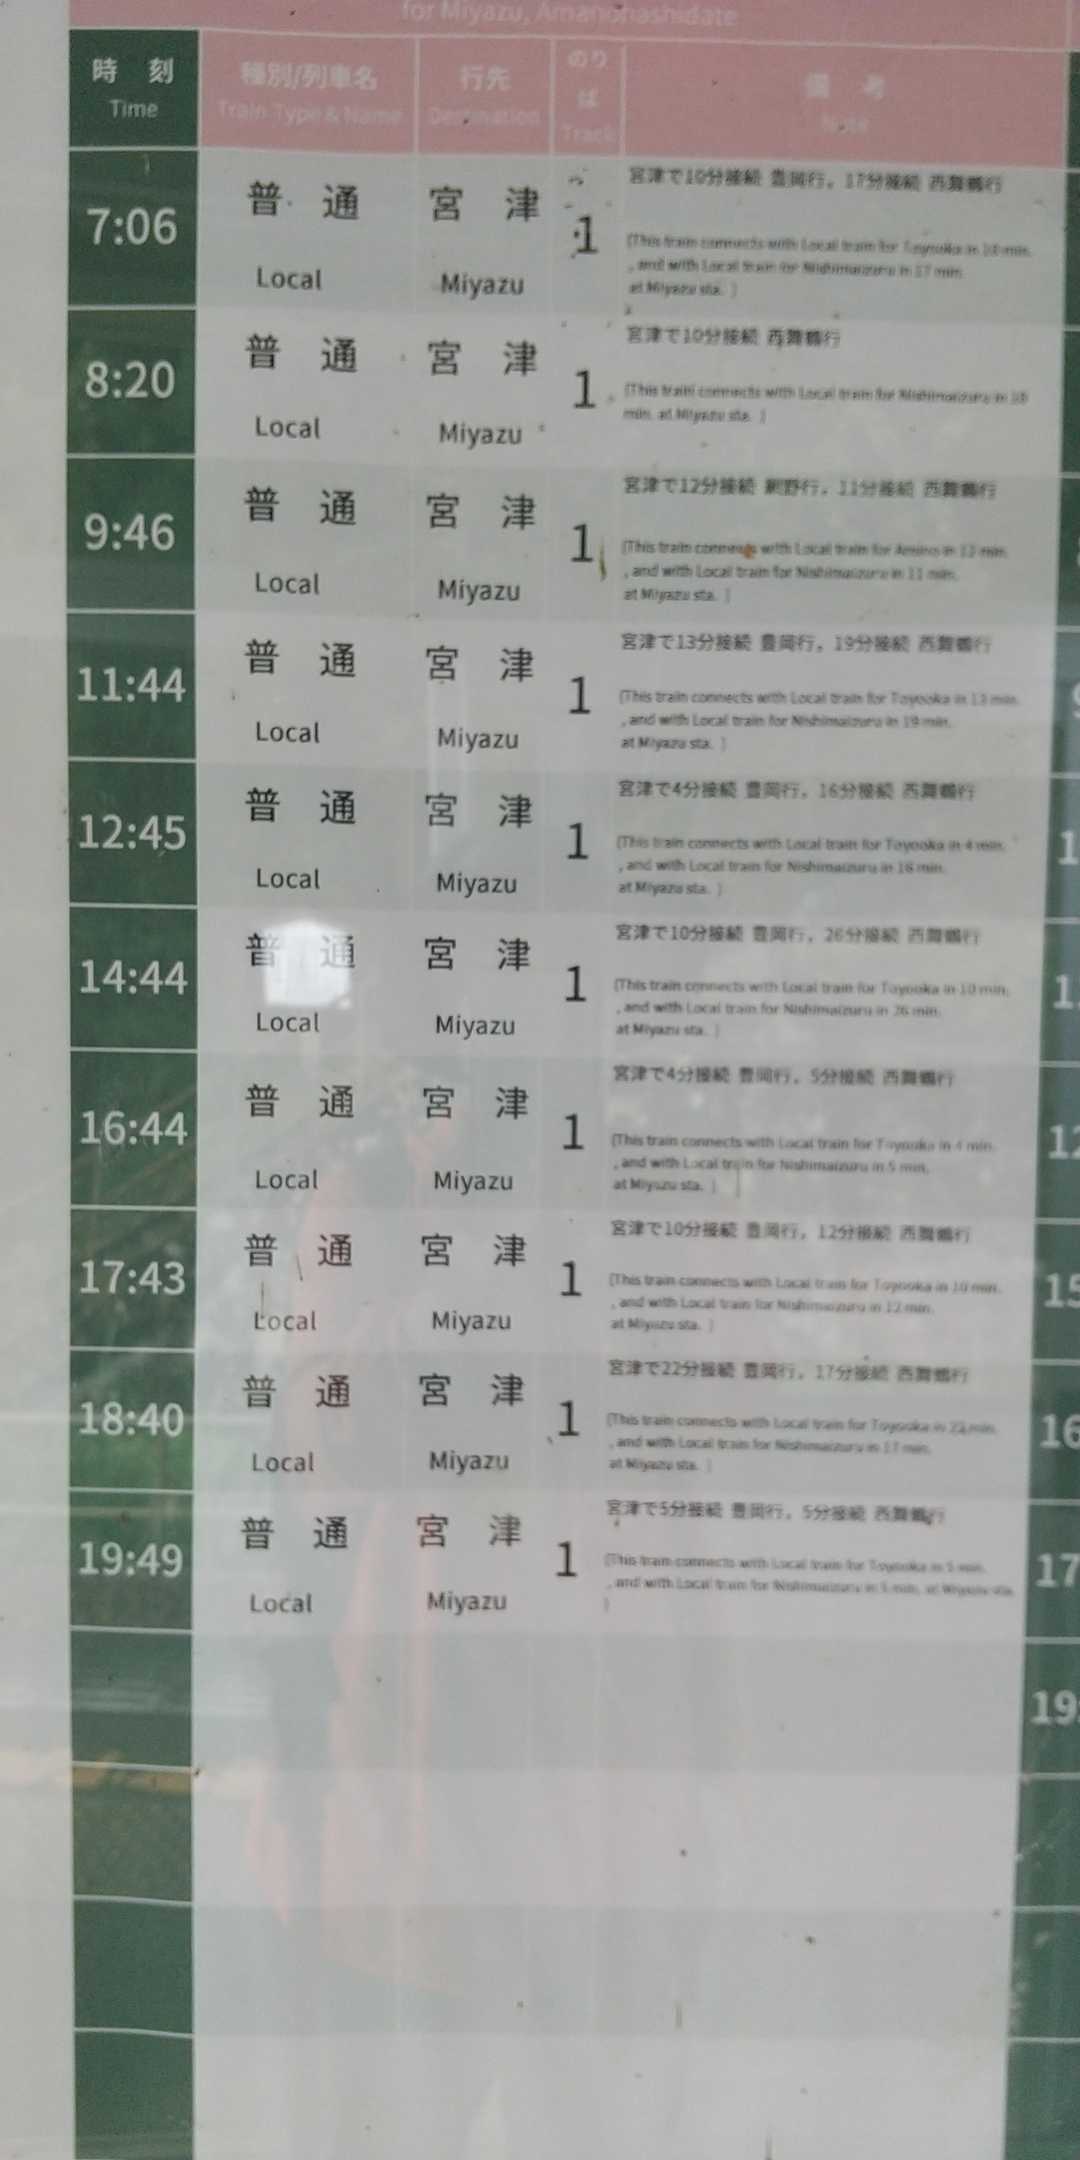 for Miyazu, Amanohashidate
時 刻 種別/列車名 行先 のりば 備 考
Time Train Type & Name Destination Track Note
7:06 普 通 宮 津 1 宮津で10分接続 豊岡行，17分接続 西舞鶴行
Local Miyazu
(This train connects with Local train for Toyooka in 10 min.
, and with Local train for Nishimaizuru in 17 min.
at Miyazu sta. )
8:20 普 通 宮 津 1 宮津で10分接続 西舞鶴行
Local Miyazu
(This train connects with Local train for Nishimaizuru in 10
min. at Miyazu sta. )
9:46 普 通 宮 津 1 宮津で12分接続 網野行，11分接続 西舞鶴行
Local Miyazu
(This train connects with Local train for Amino in 12 min.
, and with Local train for Nishimaizuru in 11 min.
at Miyazu sta. )
11:44 普 通 宮 津 1 宮津で13分接続 豊岡行，19分接続 西舞鶴行
Local Miyazu
(This train connects with Local train for Toyooka in 13 min.
, and with Local train for Nishimaizuru in 19 min.
at Miyazu sta. )
12:45 普 通 宮 津 1 宮津で4分接続 豊岡行，16分接続 西舞鶴行
Local Miyazu
(This train connects with Local train for Toyooka in 4 min.
, and with Local train for Nishimaizuru in 16 min.
at Miyazu sta. )
14:44 普 通 宮 津 1 宮津で10分接続 豊岡行，26分接続 西舞鶴行
Local Miyazu
(This train connects with Local train for Toyooka in 10 min.
, and with Local train for Nishimaizuru in 26 min.
at Miyazu sta. )
16:44 普 通 宮 津 1 宮津で4分接続 豊岡行，5分接続 西舞鶴行
Local Miyazu
(This train connects with Local train for Toyooka in 4 min.
, and with Local train for Nishimaizuru in 5 min.
at Miyazu sta. )
17:43 普 通 宮 津 1 宮津で10分接続 豊岡行，12分接続 西舞鶴行
Local Miyazu
(This train connects with Local train for Toyooka in 10 min.
, and with Local train for Nishimaizuru in 12 min.
at Miyazu sta. )
18:40 普 通 宮 津 1 宮津で22分接続 豊岡行，17分接続 西舞鶴行
Local Miyazu
(This train connects with Local train for Toyooka in 22 min.
, and with Local train for Nishimaizuru in 17 min.
at Miyazu sta. )
19:49 普 通 宮 津 1 宮津で5分接続 豊岡行，5分接続 西舞鶴行
Local Miyazu
(This train connects with Local train for Toyooka in 5 min.
, and with Local train for Nishimaizuru in 5 min. at Miyazu sta.
)
12
15
16
17
19: